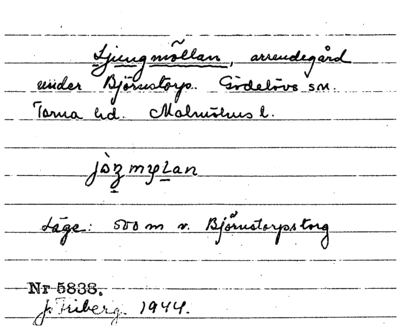 Ljungmöllan, arrendegård
under Björnstorp. Gödelövs sn.
Torna hd. Malmöhus l.
Läge: 500 m v. Björnstorps torg
Nr 5838.
J. Friberg. 1944.